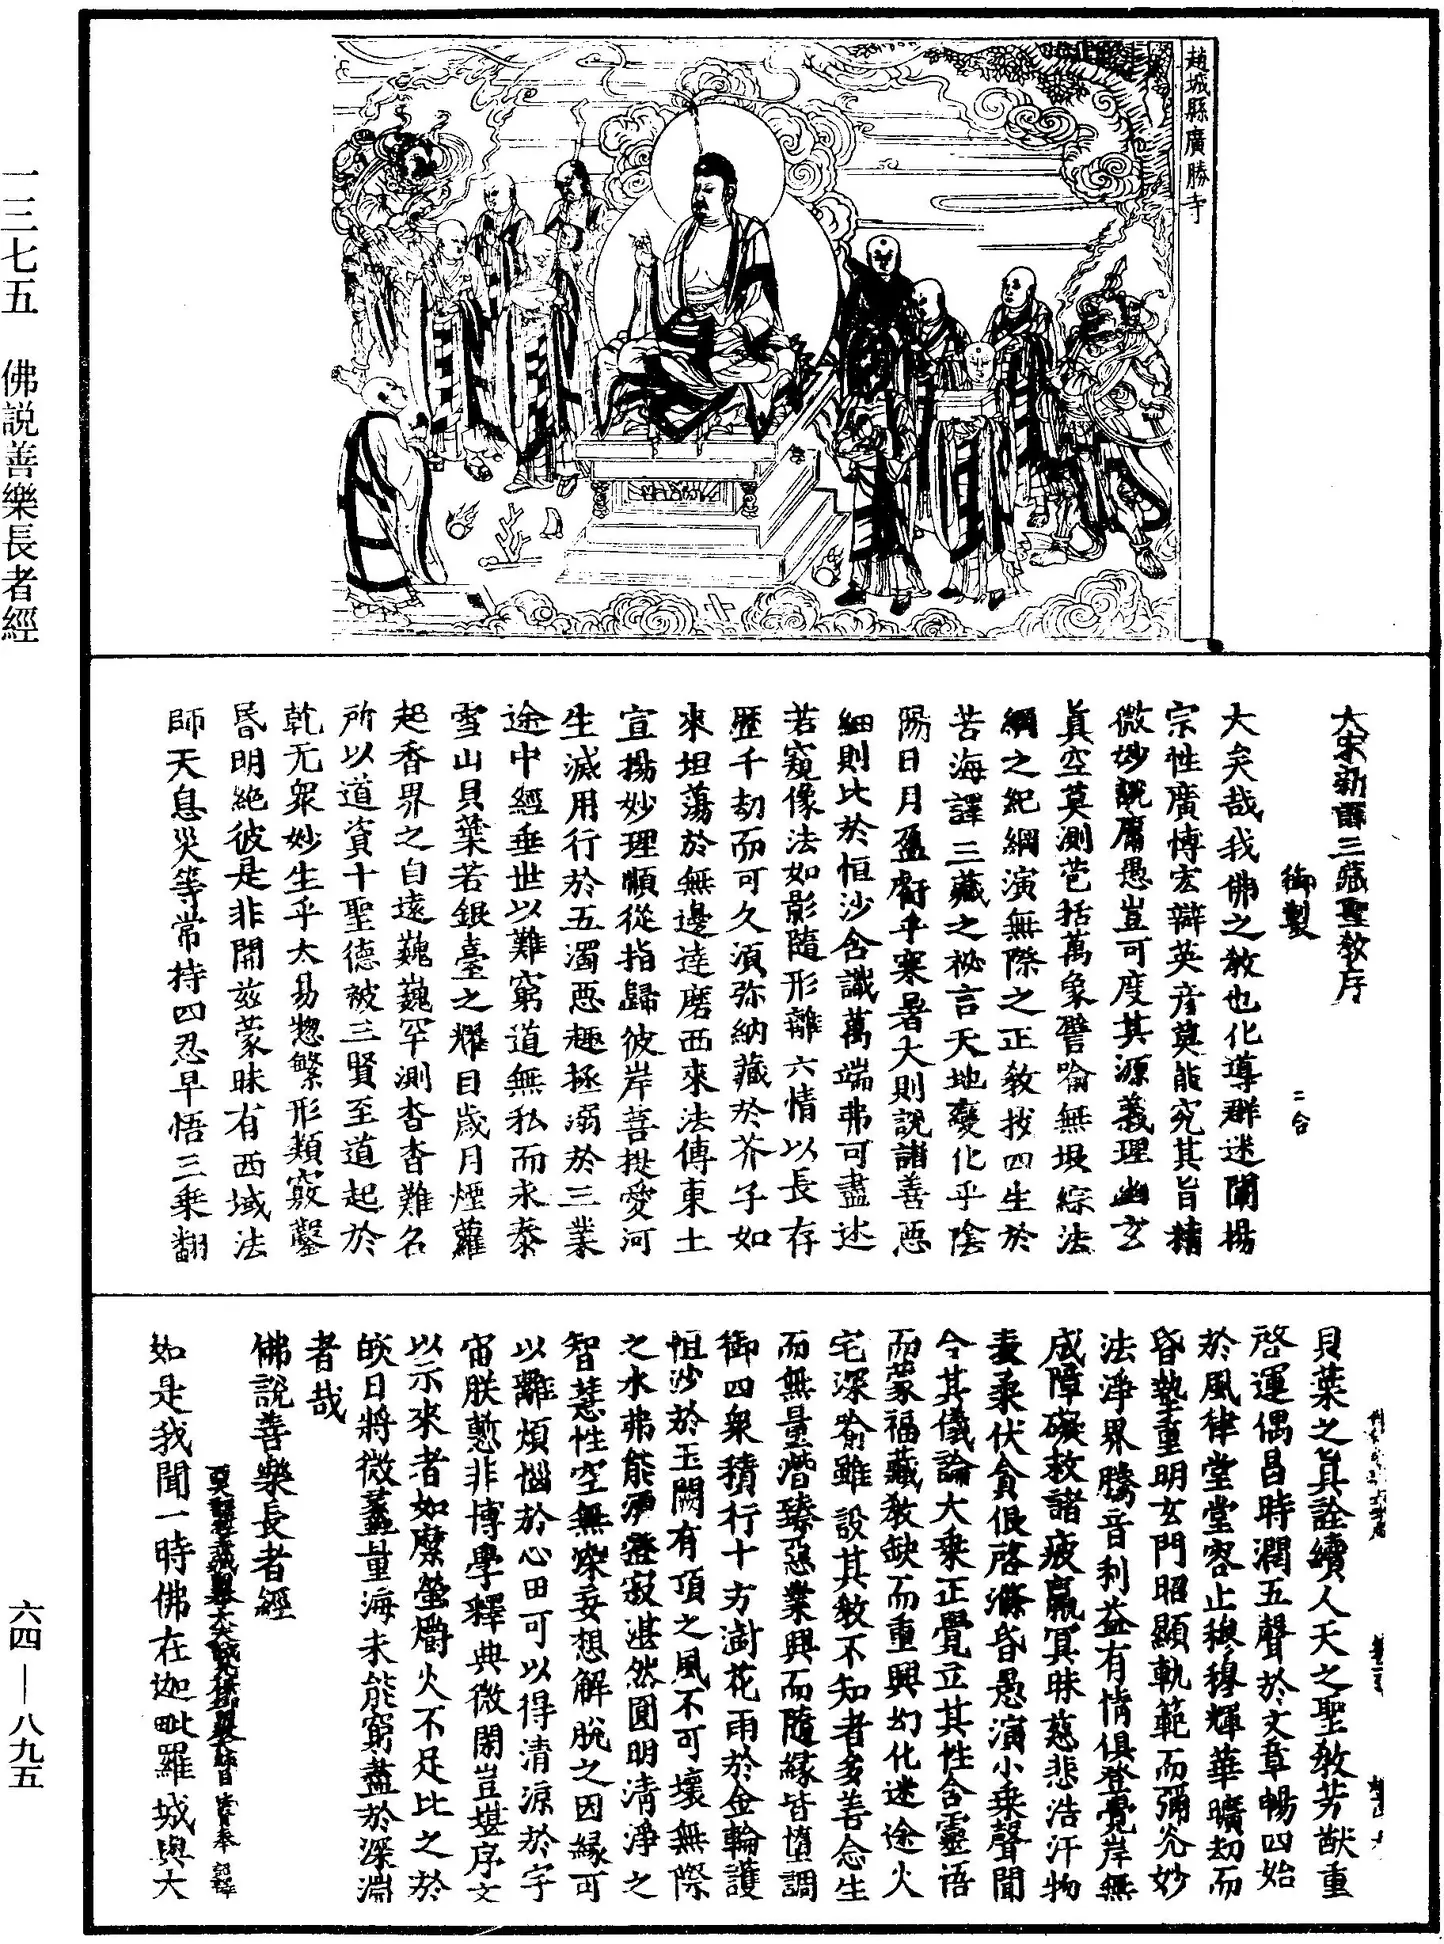 趙城縣廣勝寺
一三七五　佛説善樂長者經
大宋新譯三藏聖教序
御製
二合
大矣哉我佛之教也化導群迷闡揚
宗性廣博宏辯英彦莫能究其旨精
微妙説庸愚豈可度其源義理幽玄
真空莫測苞括萬象譬喻無垠綜法
網之紀綱演無際之正教拔四生於
苦海譯三藏之祕言天地變化乎陰
陽日月盈虧乎寒暑大則説諸善惡
細則比於恒沙含識萬端弗可盡述
若窺像法如影隨形離六情以長存
歷千劫而可久須弥納藏於芥子如
來坦蕩於無邊達磨西來法傳東土
宣揚妙理順從指歸彼岸菩提愛河
生滅用行於五濁惡趣拯溺於三業
途中經垂世以難窮道無私而永泰
雪山貝葉若銀臺之耀目歲月煙蘿
起香界之自遠巍巍罕測杳杳難名
所以道資十聖德被三賢至道起於
乾元衆妙生乎太易惣繁形類竅鑿
昏明絶彼是非開兹蒙昧有西域法
師天息災等常持四忍早悟三乘翻
貝葉之真詮續人天之聖教芳猷重
啓運偶昌時潤五聲於文章暢四始
於風律堂堂容止穆穆輝華曠劫而
昏墊重明玄門昭顯軌範而彌光妙
法淨界騰音利益有情俱登覺岸無
成障礙救諸疲羸冥昧慈悲浩汗物
表柔伏貪佷啓滌昏愚演小乘聲聞
合其儀論大乘正覺立其性含靈語
而蒙福藏教缺而重興幻化迷途火
宅深喻雖設其教不知者多善念生
而無量潛臻惡業興而隨緣皆墮調
御四衆積行十方澍花雨於金輪護
恒沙於玉闕有頂之風不可壞無際
之水弗能漂澄寂湛然圓明清淨之
智慧性空無染妄想解脱之因緣可
以離煩惱於心田可以得清涼於宇
宙朕慙非博學釋典微閑豈堪序文
以示來者如縻螢爝火不足比之於
皎日將微蠡量海未能窮盡於深淵
者哉
佛説善樂長者經
如是我聞一時佛在迦毗羅城與大
六四—八九五